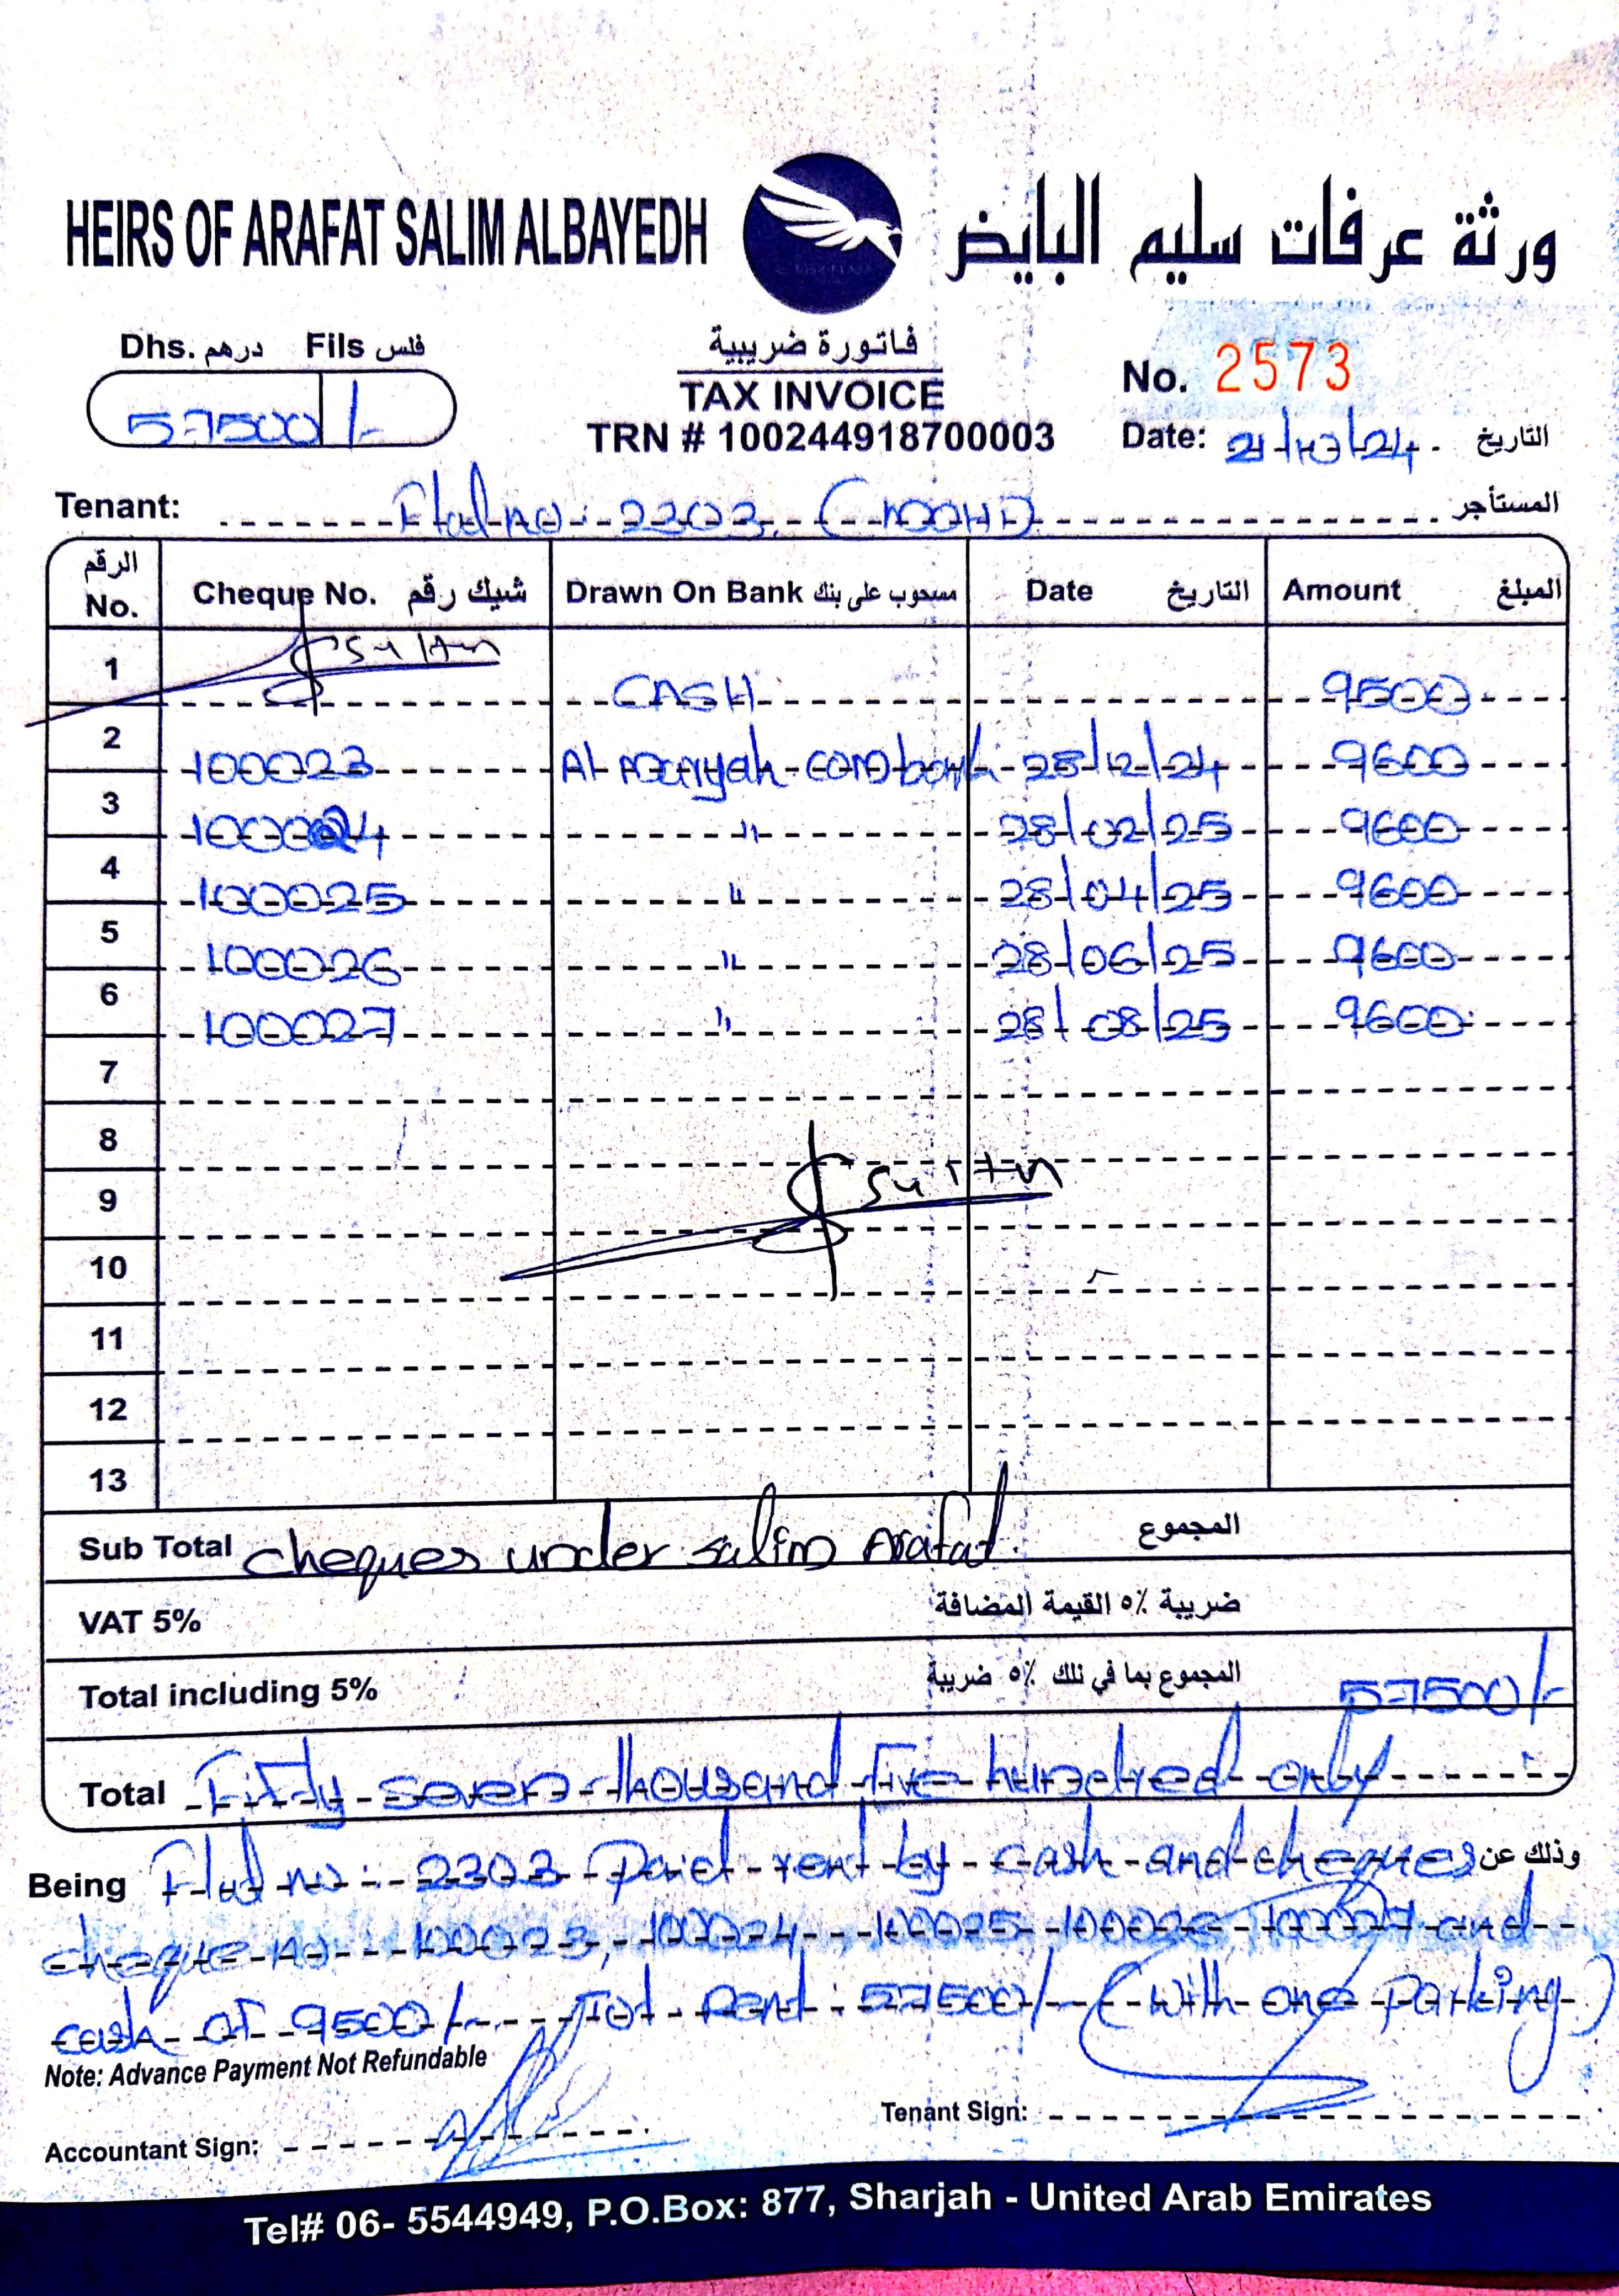 HEIRS OF ARAFAT SALIM ALBAYEDH ورثة عرفات سليم البايض
Dhs. درهم Fils فلس
57500/-
فاتورة ضريبية
TAX INVOICE
TRN # 100244918700003
No. 2573
Date: التاريخ
Tenant: Flat no: 2303 المستأجر
الرقم No. Cheque No. شيك رقم Drawn On Bank مسحوب على بنك Date التاريخ Amount المبلغ
1 Sultan CASH 9500
2 100023 28/12/24 9600
3 100024 " 28/02/25 9600
4 100025 " 28/04/25 9600
5 100026 " 28/06/25 9600
6 100027 " 28/08/25 9600
7
8
9 Sultan
10
11
12
13
Sub Total cheques under salim Arafat. المجموع
VAT 5% ضريبة ٥٪ القيمة المضافة
Total including 5% المجموع بما في ذلك ٥٪ ضريبة 57500/-
Total Fifty seven thousand Five hundred only
Being Flat no: 2303 Paid rent by cash and cheques وذلك عن
cheque no 100023, 100024, 100025 100026 100027 and
cash of 9500/- Tot Rent: 57500/- (with one parking)
Note: Advance Payment Not Refundable
Accountant Sign: Tenant Sign:
Tel# 06- 5544949, P.O.Box: 877, Sharjah - United Arab Emirates